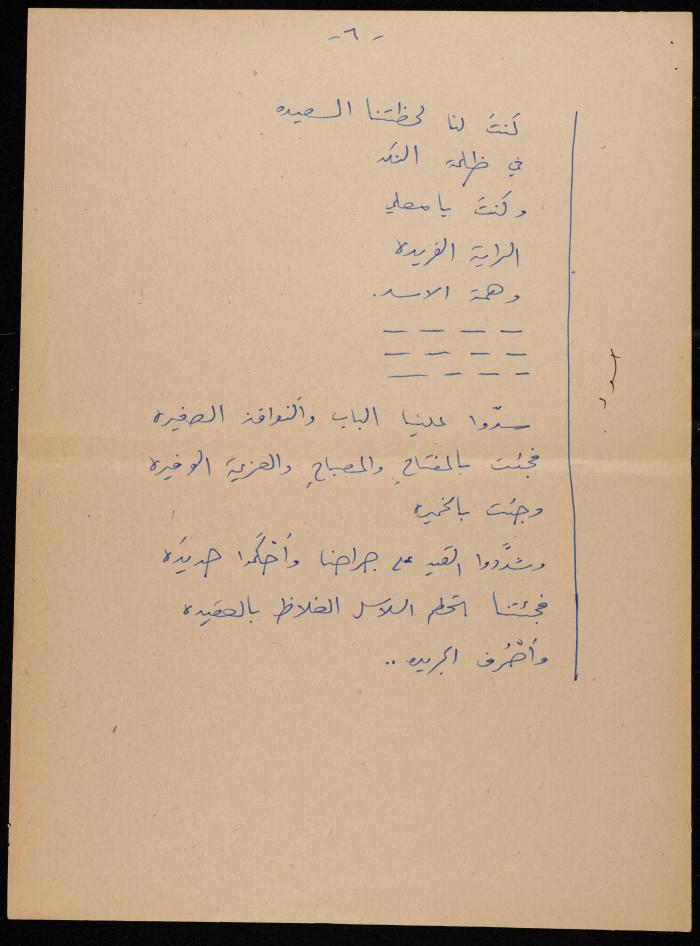 - ٦ -
كنتَ لنا لحظتنا السعيده
في ظلمة النكد
وكنتَ يا معلمي
الراية الفريده
وهمة الاسد.
— — — —
— — — —
— — — —
سدّوا علينا الباب والنوافذ الصغيره
فجئت بالمفتاحِ والمصباحِ والعزيمة الوفيره
وجئت بالخميره
وشدَّدوا القيد على جراحنا وأحْكَموا حديدَه
فجئتنا تحطم السلاسل الغلاظ بالعقيده
وأحْرُف الجريده ..